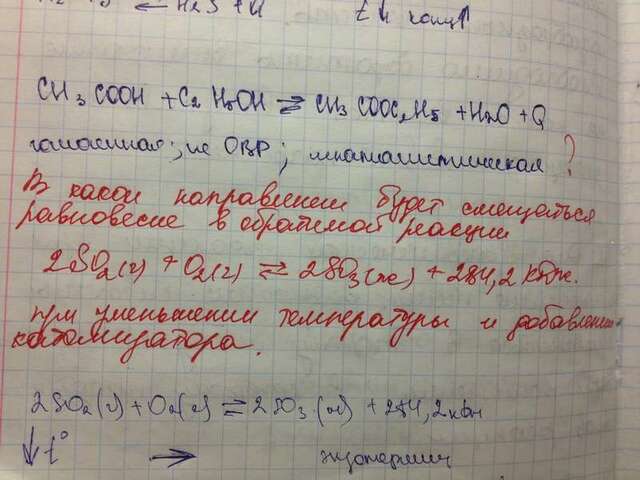 ← H2S + U
t и конц↑
CH3COOH + C2H5OH ⇄ CH3COOC2H5 + H2O + Q
гомогенная; не ОВР; ?
В каком направлении будет смещаться
равновесие в обратимой реакции
2SO2(г) + O2(г) ⇄ 2SO3(ж) + 284,2 кДж.
при уменьшении температуры и добавлении
катализатора.
2SO2(г) + O2(г) ⇄ 2SO3(ж) + 284,2 кДж
↓ t° → экзотермич